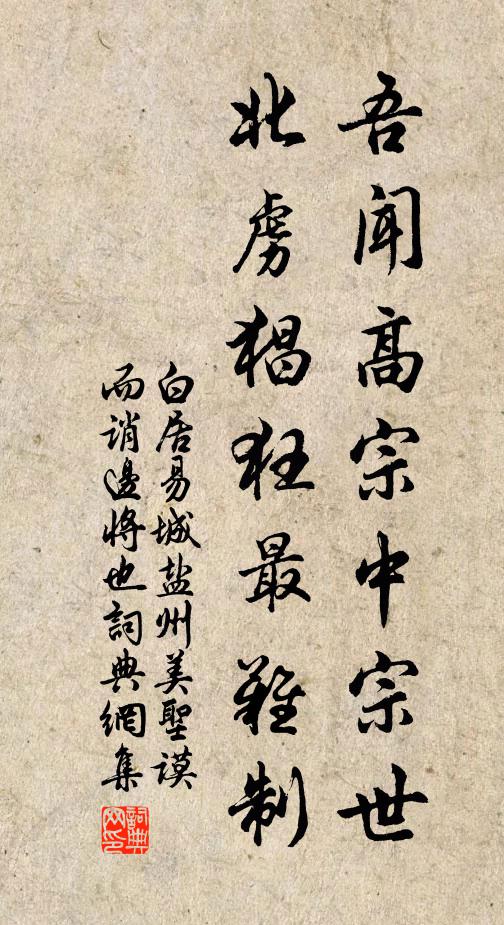 吾闻高宗中宗世
北虏猖狂最难制
白居易城盐州美圣谟
而诮边将也词典网集
词典网印